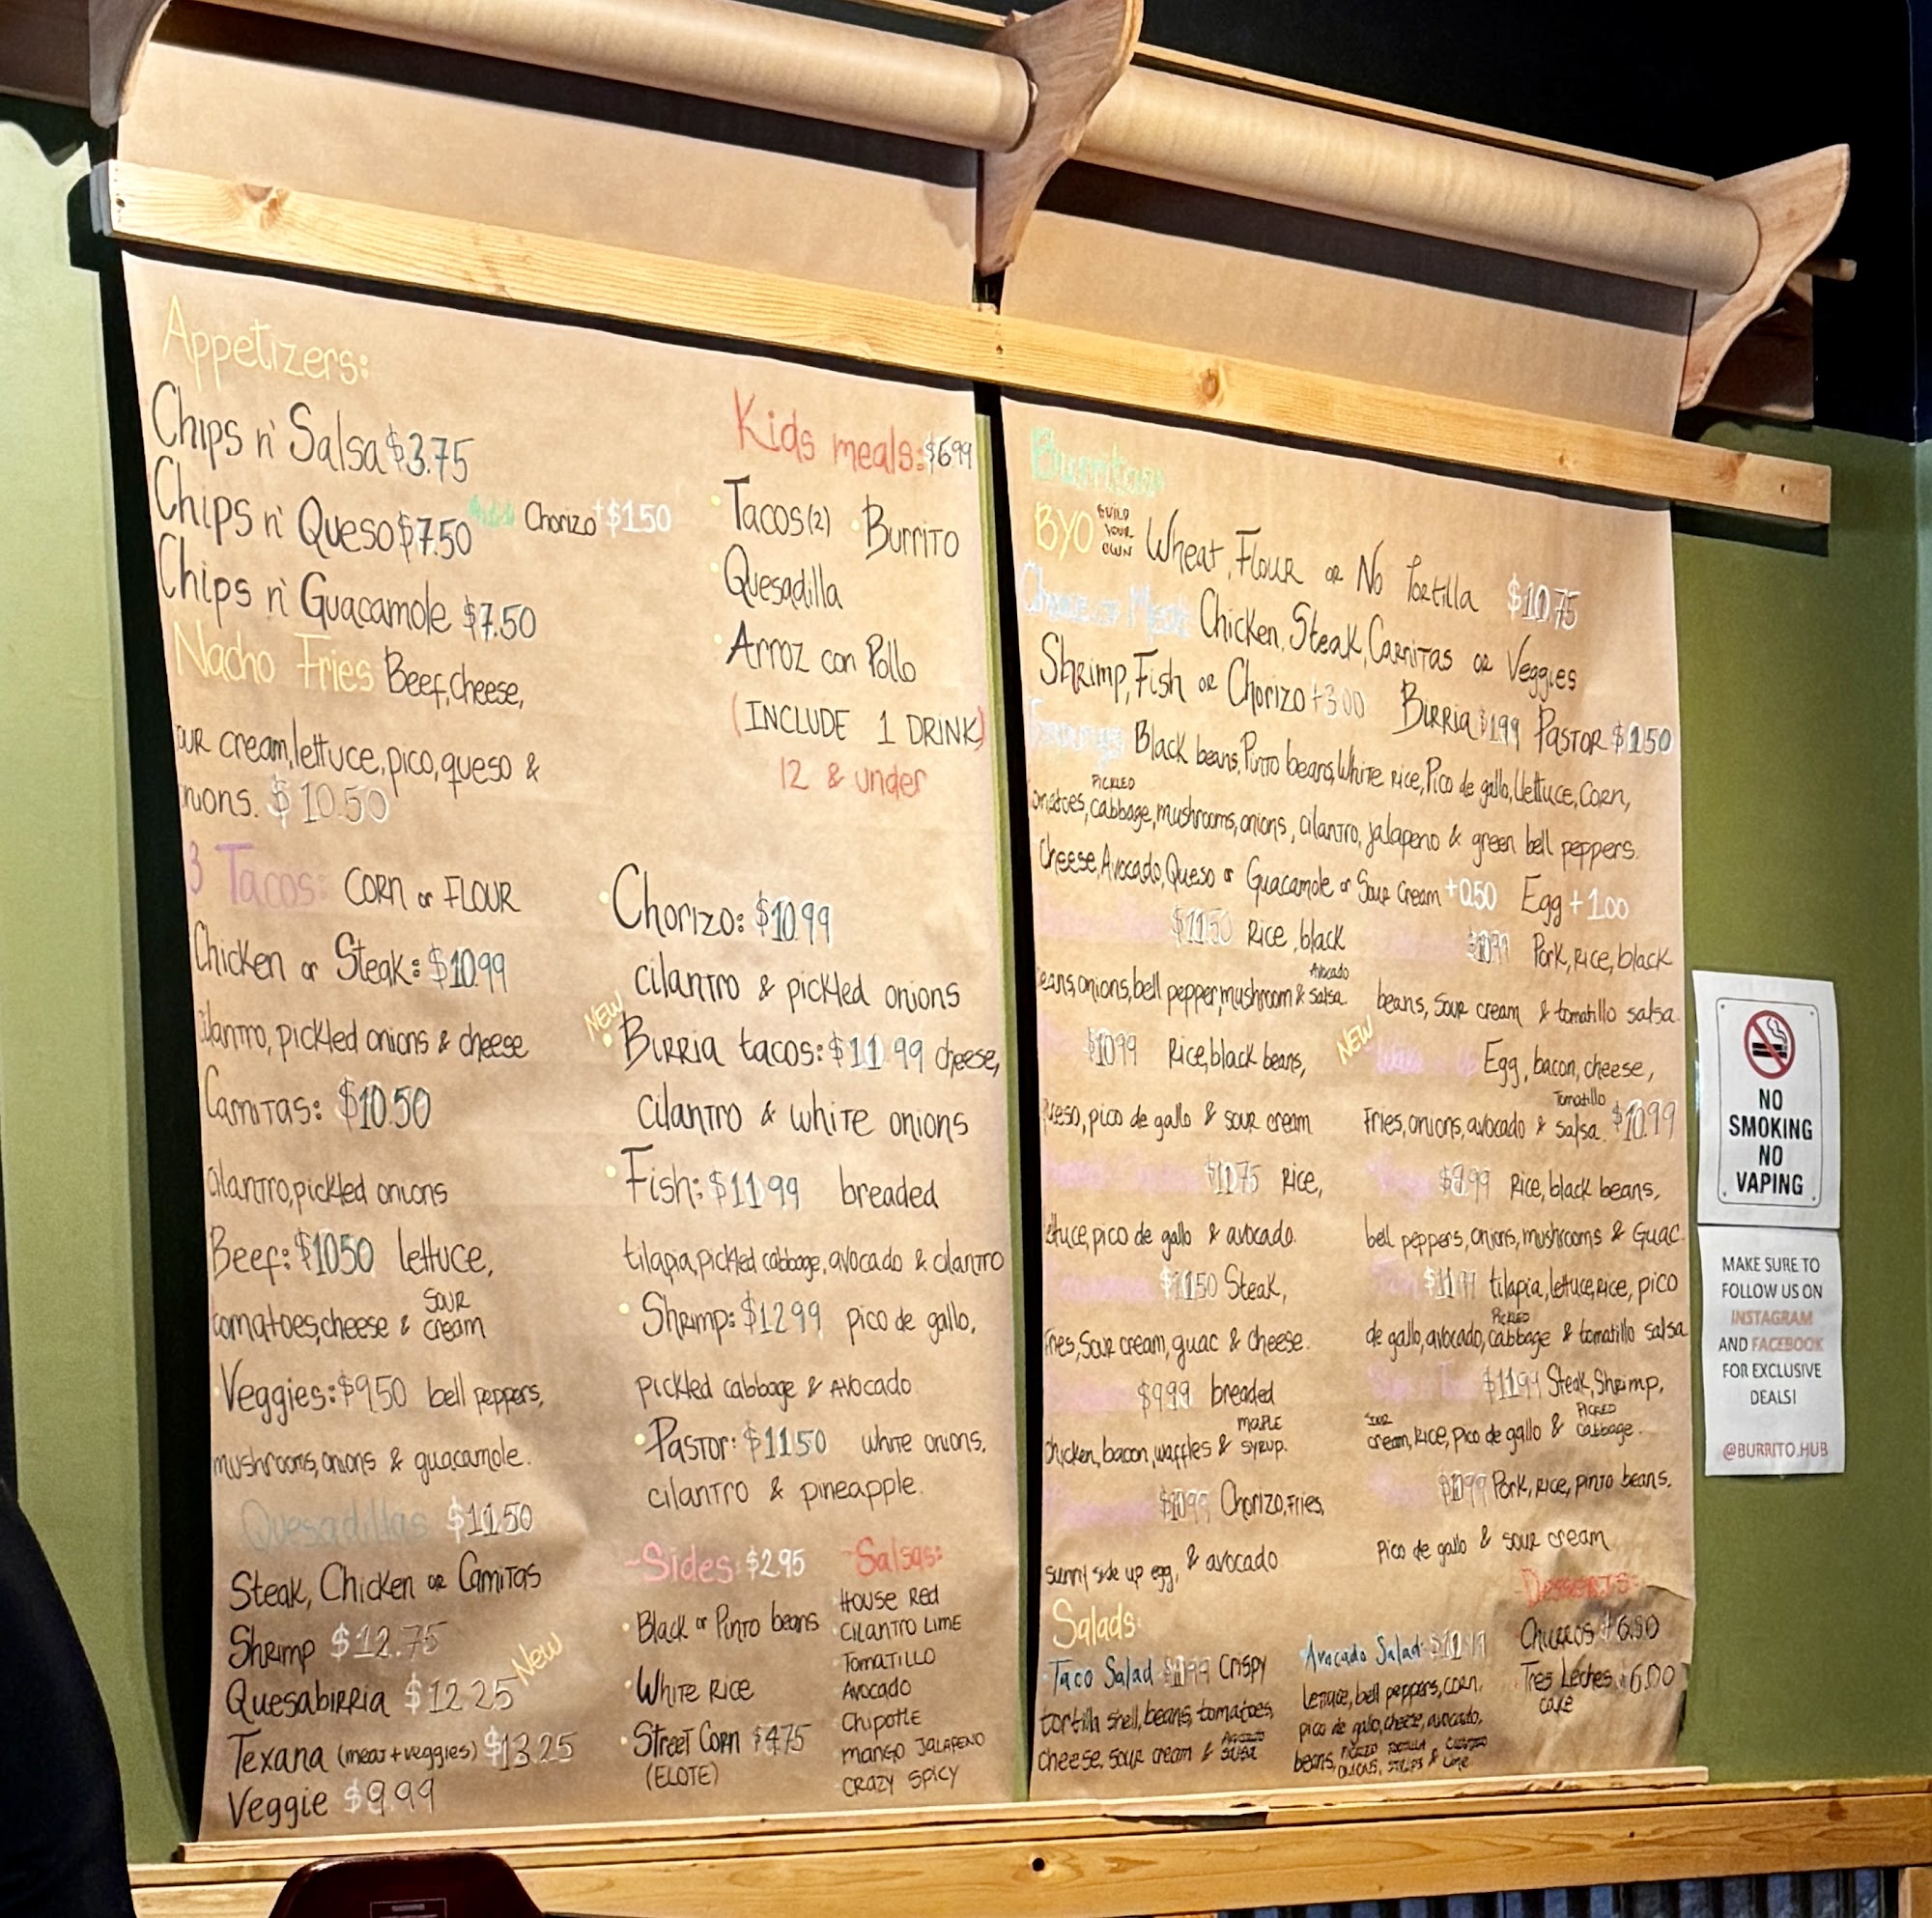 Appetizers:
Chips n' Salsa $3.75
Chips n' Queso $7.50 Add Chorizo +$1.50
Chips n' Guacamole $7.50
Nacho Fries Beef, cheese,
our cream, lettuce, pico, queso &
nions. $10.50
Kids meals: $6.99
Tacos (2) Burrito
Quesadilla
Arroz con Pollo
(INCLUDE 1 DRINK)
12 & under
3 Tacos: CORN or FLOUR
Chicken or Steak: $10.99
cilantro, pickled onions & cheese
Carnitas: $10.50
cilantro, pickled onions
Beef: $10.50 lettuce,
tomatoes, cheese & sour cream
Veggies: $9.50 bell peppers,
mushrooms, onions & guacamole.
Chorizo: $10.99
cilantro & pickled onions
NEW
Birria tacos: $11.99 cheese,
cilantro & white onions
Fish: $11.99 breaded
tilapia, pickled cabbage, avocado & cilantro
Shrimp: $12.99 pico de gallo,
pickled cabbage & Avocado
Pastor: $11.50 white onions,
cilantro & pineapple.
Quesadillas $11.50
Steak, Chicken or Carnitas
Shrimp $12.75
Quesabirria $12.25 New
Texana (meat + veggies) $13.25
Veggie $9.99
-Sides: $2.95
Black or Pinto beans
White Rice
Street Corn $4.75
(ELOTE)
-Salsas:
House Red
Cilantro Lime
Tomatillo
Avocado
Chipotle
mango Jalapeno
Crazy Spicy
Burritos
BYO BUILD YOUR OWN Wheat, Flour or No Tortilla $10.75
Choice of Meat: Chicken, Steak, Carnitas or Veggies
Shrimp, Fish or Chorizo +3.00 Birria $1.99 Pastor $1.50
Black beans, Pinto beans, White rice, Pico de gallo, Lettuce, Corn,
omatoes, PICKLED cabbage, mushrooms, onions, cilantro, jalapeno & green bell peppers.
Cheese, Avocado, Queso or Guacamole or Sour Cream +0.50 Egg +1.00
$11.50 Rice, black
eans, onions, bell pepper, mushroom & Avocado salsa
$10.99 Rice, black beans,
ueso, pico de gallo & sour cream
Rice,
ettuce, pico de gallo & avocado.
$11.50 Steak,
fries, Sour cream, guac & cheese.
$9.99 breaded
chicken, bacon, waffles & maple syrup.
$10.99 Chorizo, Fries,
sunny side up egg, & avocado
Pork, rice, black
beans, sour cream & tomatillo salsa
NEW
Egg, bacon, cheese,
Fries, onions, avocado & Tomatillo salsa. $10.99
Rice, black beans,
bell peppers, onions, mushrooms & Guac.
tilapia, lettuce, rice, pico
de gallo, avocado, PICKLED cabbage & tomatillo salsa
$11.99 Steak, Shrimp,
sour cream, rice, pico de gallo & PICKLED cabbage.
$10.99 Pork, rice, pinto beans.
Pico de gallo & sour cream
Salads:
Taco Salad Crispy
tortilla shell, beans, tomatoes,
cheese, sour cream & Avocado salsa
Avocado Salad
Lettuce, bell peppers, corn,
pico de gallo, cheese, avocado,
beans, PICKLED ONIONS, TORTILLA STRIPS & CILANTRO LIME
-Desserts:
Churros
Tres Leches 6.00
cake
NO
SMOKING
NO
VAPING
MAKE SURE TO
FOLLOW US ON
INSTAGRAM
AND FACEBOOK
FOR EXCLUSIVE
DEALS!
@BURRITO.HUB